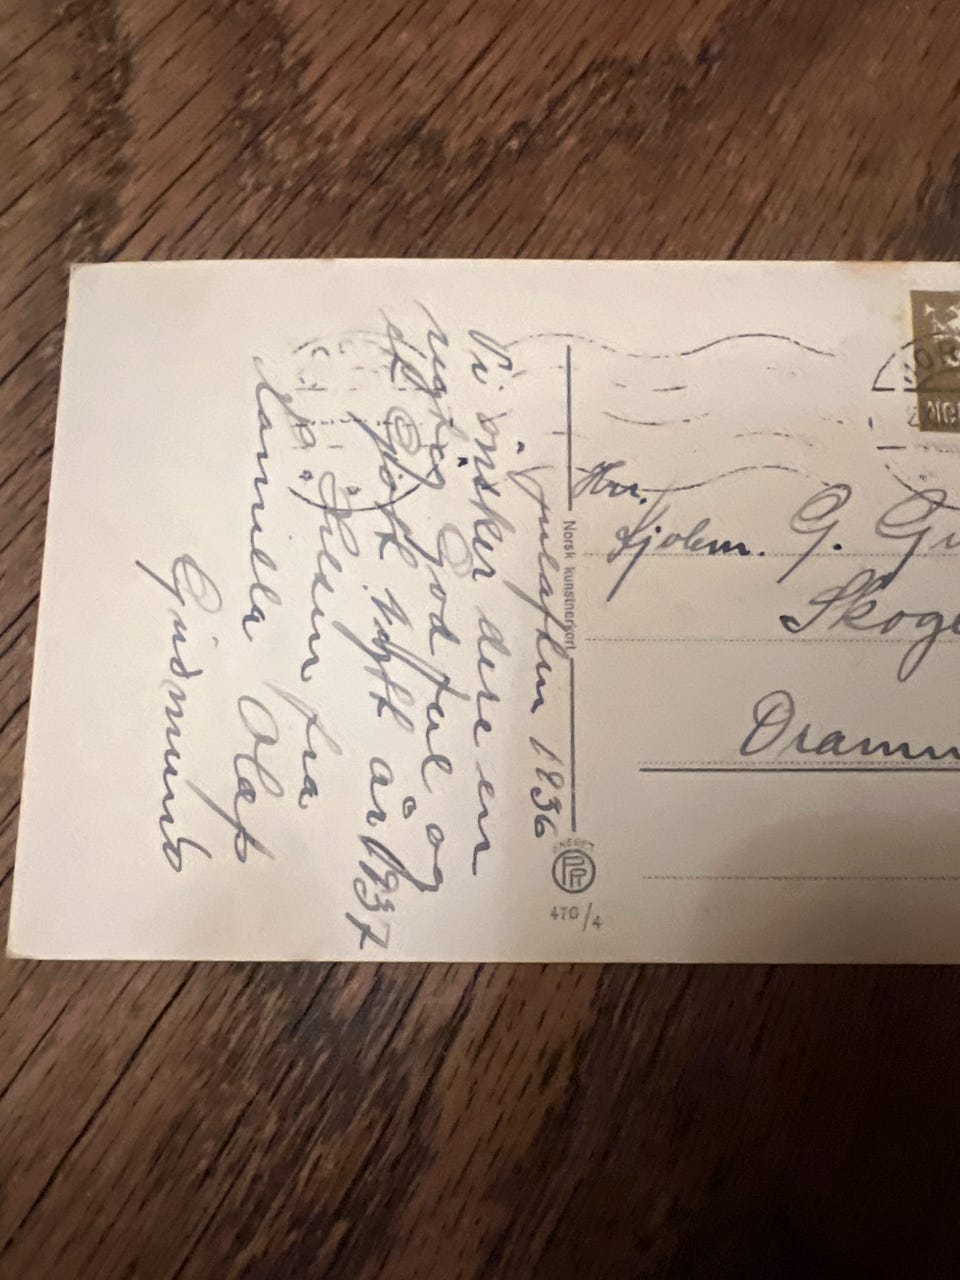 Julaften 1936
Vi ønsker dere en
rigtig God Jul og
et Godt Nytt år 1937
Hilsen fra
Olaf
Gudmund
Norsk kunstnerkort
ENERET
470/4
Hrr.
G.
Skoge
Dramm